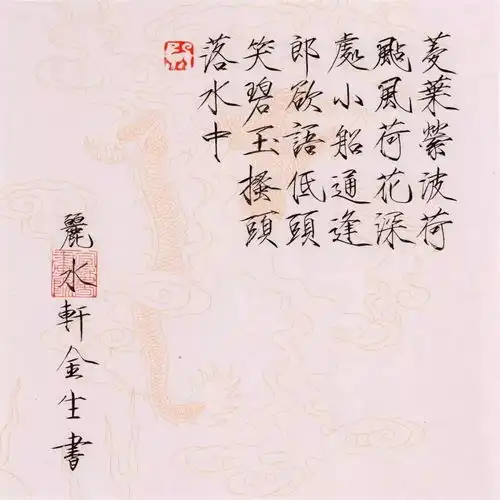 菱葉縈波荷
颭風荷花深
處小船通逢
郎欲語低頭
笑碧玉搔頭
落水中
麗水軒金生書